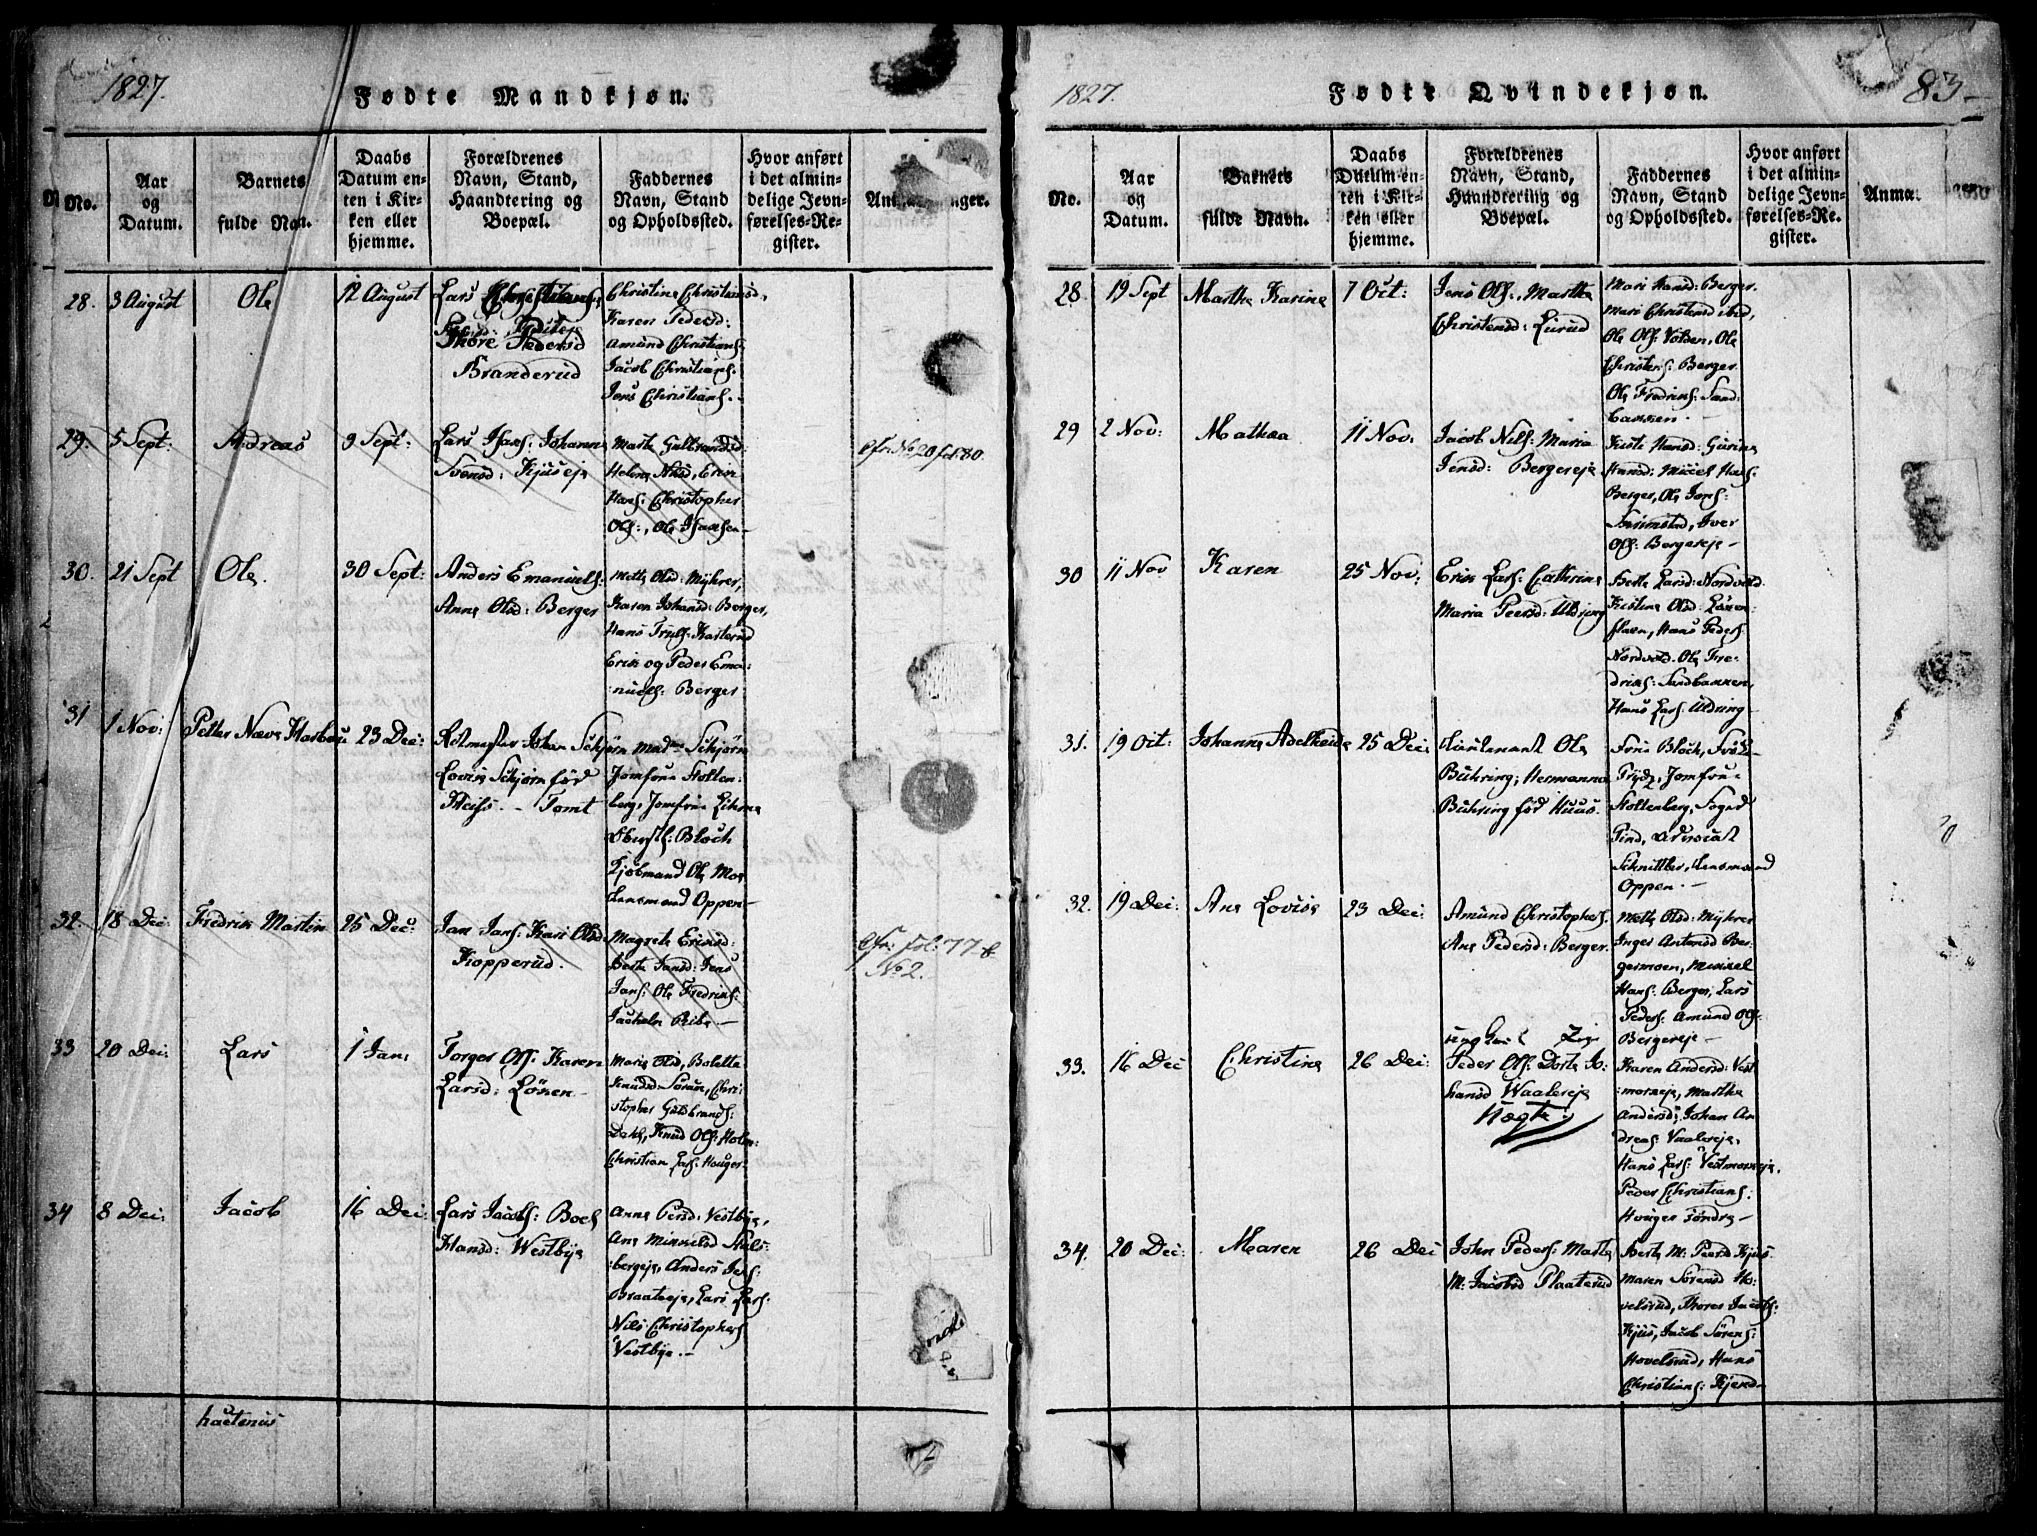 1827.
Fødte Mandkjøn.
No.
Aar og Datum.
Barnets fulde Nan.
Daabs Datum enten i Kirken eller hjemme.
Forældrenes Navn, Stand, Haandtering og Boepæl.
Faddernes Navn, Stand og Opholdssted.
Hvor anført i det almindelige Jevnførelses-Register.
28.
3 August
Ole
12 August
Lars
Thore Pedersd
Branderud
Christine Christiansd,
Karen Pedersd:
Amund Christians:
Jacob Christians:
Jens Christians. -
29.
5 Sept:
Andreas
9 Sept:
Lars Hans: Johanne
Svensd: Kjuseje
Marte Gulbrandsd:
Helene Nilsd, Erik
Hans: Christopher
Ols:, Ole
Cfr No 20 fol 80.
30.
21 Sept
Ole.
30 Sept:
Anders Emanuels:
Anne Olsd: Berger
Mette Olsd: Myhrer,
Karen Johansd: Berger,
Hans Truls: Kasterud
Erik og Peder Ema-
nuels: Berger
31
1 Nov:
Petter Næve Harbou
23 Dec:
Ritmester Johan Schjørn
Lovise Schjørn fød
Theiss - Tomt
Mad Schjørn
Jomfrue Stolten-
berg, Jomfrue
Oberstl: Bloch
Kjøbmand Ole Moe
Lensmand Oppen -
32.
18 Dec:
Fredrik Martin
25 Dec:
Jan Jans: Kari Olsd
Kopperud.
Magrete Ericsd:
Berte Jansd: Jens
Jans: Ole Fredriks:
Jacheln Ribe -
Cfr: fol: 77 b
No 2.
33
20 Dec:
Lars
1 Jan,
Torger Ols: Karen
Larsd: Løken -
Marie Olsd, Bolette
Knudsd Søraas, Chri-
stopher Guldbrands:
Dahl, Knud Ols: Holm:
Christian Lars: Houger-
34
8 Dec:
Jacob
16 Dec:
Lars Jacobs: Boel
Hansd: Westbye
Anne Persd: Vestbye,
Ane Mikkelsd Huls-
bergeje, Anders Jens:
Braateeje, Lars Lars:
Nils Christophers
Vestbye. -
hactenus
1827.
Fødte Qvindekjøn.
83 -
No.
Aar og Datum.
Barnets fulde Navn.
Daabs Datum enten i Kirken eller hjemme.
Forældrenes Navn, Stand, Haandtering og Boepæl.
Faddernes Navn, Stand og Opholdssted.
Hvor anført i det almindelige Jevnførelses-Register.
Anmæ
28
19 Sept
Marthe Karine
7 Oct:
Jens Ols:, Marthe
Christensd: Lierud
Mari Hansd: Berger.
Mari Christensd ibid,
Ole Ols: Volden, Ole
Christens: Berger.
Ole Fredriks: Sand-
bakken -
29
2 Nov:
Mathea
11 Nov:
Jacob Nils: Maria
Jensd: Bergereje
Kiste Hansd: Gurine
Hansd: Mickel Hans:
Berger, Ole Jens:
Grimstad, Iver
Ols: Bergereje -
30
11 Nov
Karen
25 Nov:
Erik Lars: Cathrine
Maria Peersd: Uldring
Berte Larsd: Nordvold.
Kistine Olsd: Løken-
flaen, Hans Peders:
Nordvold. Ole Fre-
driks: Sandbakken,
Hans Lars: Uldring -
31.
19 Oct:
Johanne Adelheide
25 Dec:
Lieutenant Ole
Bühring, Hermanna
Bühring fød Huus.
Frue Bloch, Frøk:
Tryde, Jomfrue
Stoltenberg, Foged
Pind, Advocat
Schnitler, Lensmand
Oppen. -
32.
19 Dec:
Ane Lovise
23 Dec:
Amund Christophers.
Ane Pedersd: Berger.
Mette Olsd: Myhrer
Inger Antonsd Ber-
germoen, Mikkel
Hans: Berger, Lars
Peders: Amund Ols:
Bergereje -
33.
16 Dec
Christine
26 Dec:
Peder Ols: Dorte Jo-
hansd Waalereje
Uægte:
Karen Andersd: Vest-
morneje, Marthe
Andersd; Johan An-
dreas: Vaalereje,
Hans Lars: Vestmorneje,
Peder Christians:
Houger søndre -
34.
20 Dec:
Maren
26 Dec
John Peders: Marte
M: Jacobsd Plaaterud
Berte M: Peersd Kjus.
Maren Sørensd Ho-
velsrud, Thores Jacobs:
Kjus, Jacob Sørens:
Hovelsrud, Hans
Christians: Kjend-